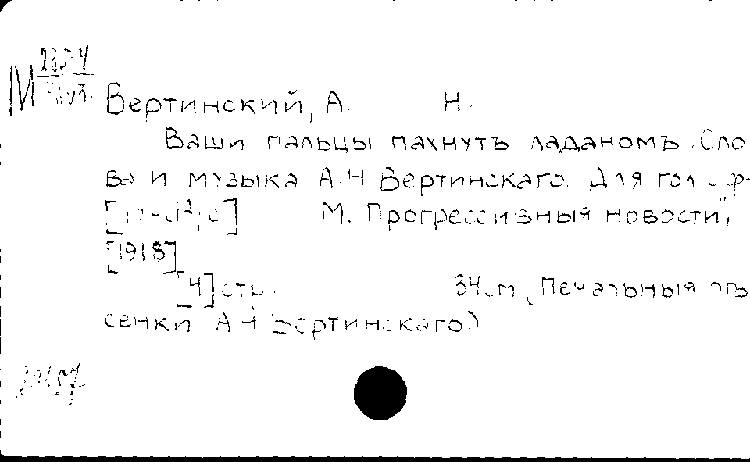 М
Вертинский, А. Н.
Ваши пальцы пахнутъ ладаномъ. Сло
ва и музыка А.Н Вертинскаго. Для гол. ф-
М. Прогрессивныя новости",
[1918]
[4] стр. 34см (Печальныя пѣ
сенки А Н Вертинскаго)